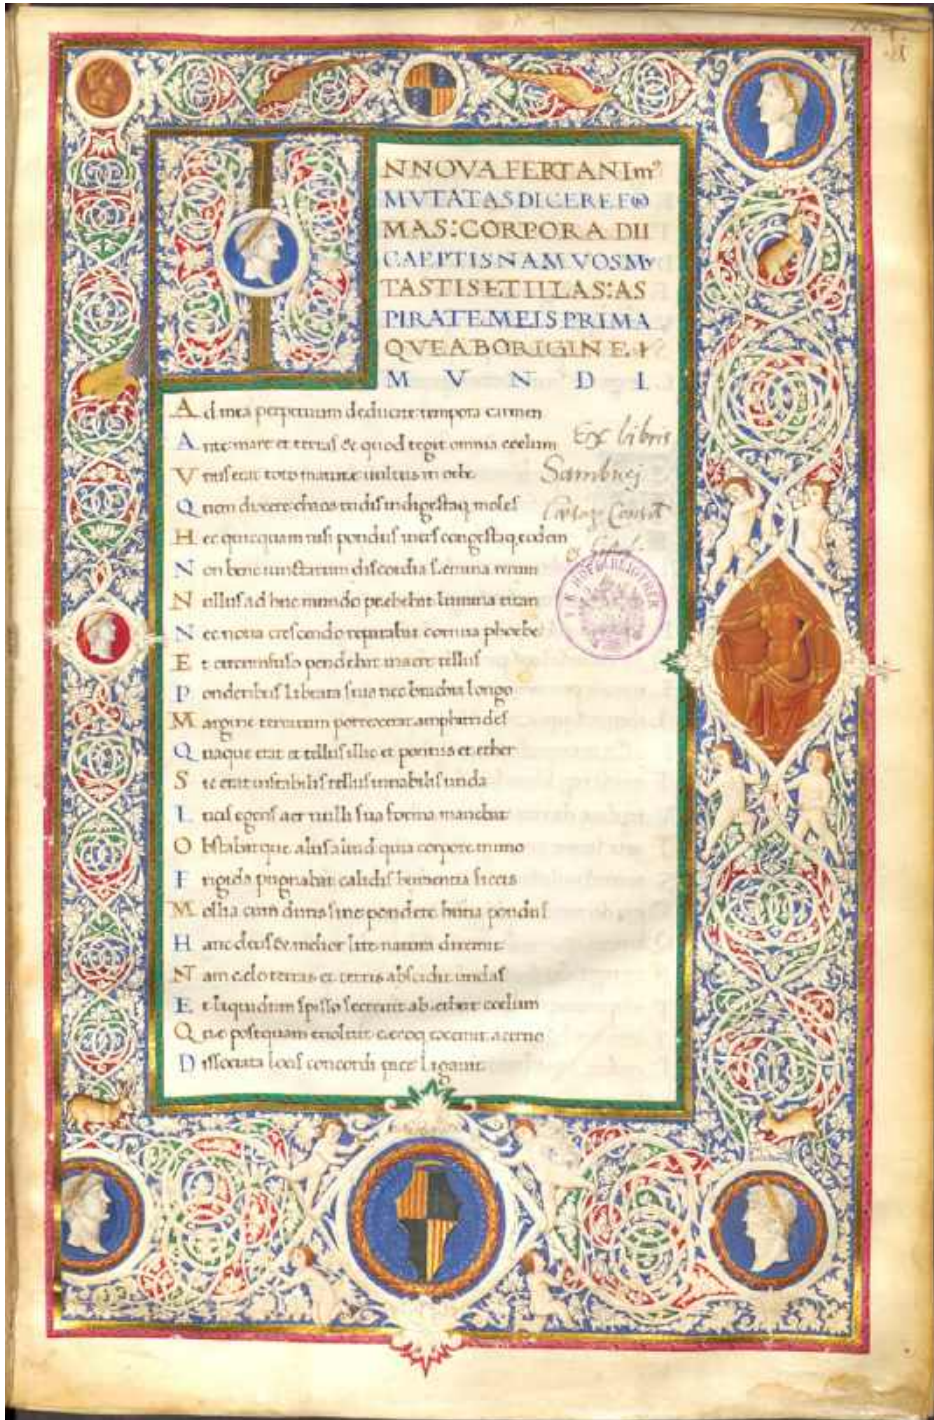 IN NOVA FERT ANIm9
MVTATAS DICERE FOR
MAS: CORPORA DII
CAEPTIS NAM VOS MV
TASTIS ET ILLAS: AS
PIRATE MEIS PRIMA
QVE AB ORIGINE.
M V N D I
Ad mea perpetuum deducite tempora carmen
Ante mare et terras & quod tegit omnia coelum
Vnus erat toto nature uultus in orbe
Quem dixere chaos rudis indigestaq moles
Hec quicquam nisi pondus iners congestaq eodem
Non bene iunctarum discordia semina rerum
Nullus ad huc mundo prebebat lumina titan
Nec noua crescendo reparabat cornua phoebe
Et circumfuso pendebat in aere tellus
Ponderibus librata suis nec brachia longo
Margine terrarum porrexerat amphitrides
Quaque erat et tellus illic et pontus et ether
Sic erat instabilis tellus innabilis unda
Lucis egens aer nulli sua forma manebat
Obstabatque aliis aliud quia corpore in uno
Frigida pugnabat calidis humentia siccis
Mollia cum duris sine pondere habentia pondus
Hanc deus & melior litem natura diremit
Nam celo terras et terris abscidit undas
Et liquidum spisso secreuit ab ethere coelum
Que postquam euoluit cecoq exemit aceruo
Dissociata locis concordi pace ligauit
Ex libris
Sambuci
K.K. HOFBIBLIOTHEK